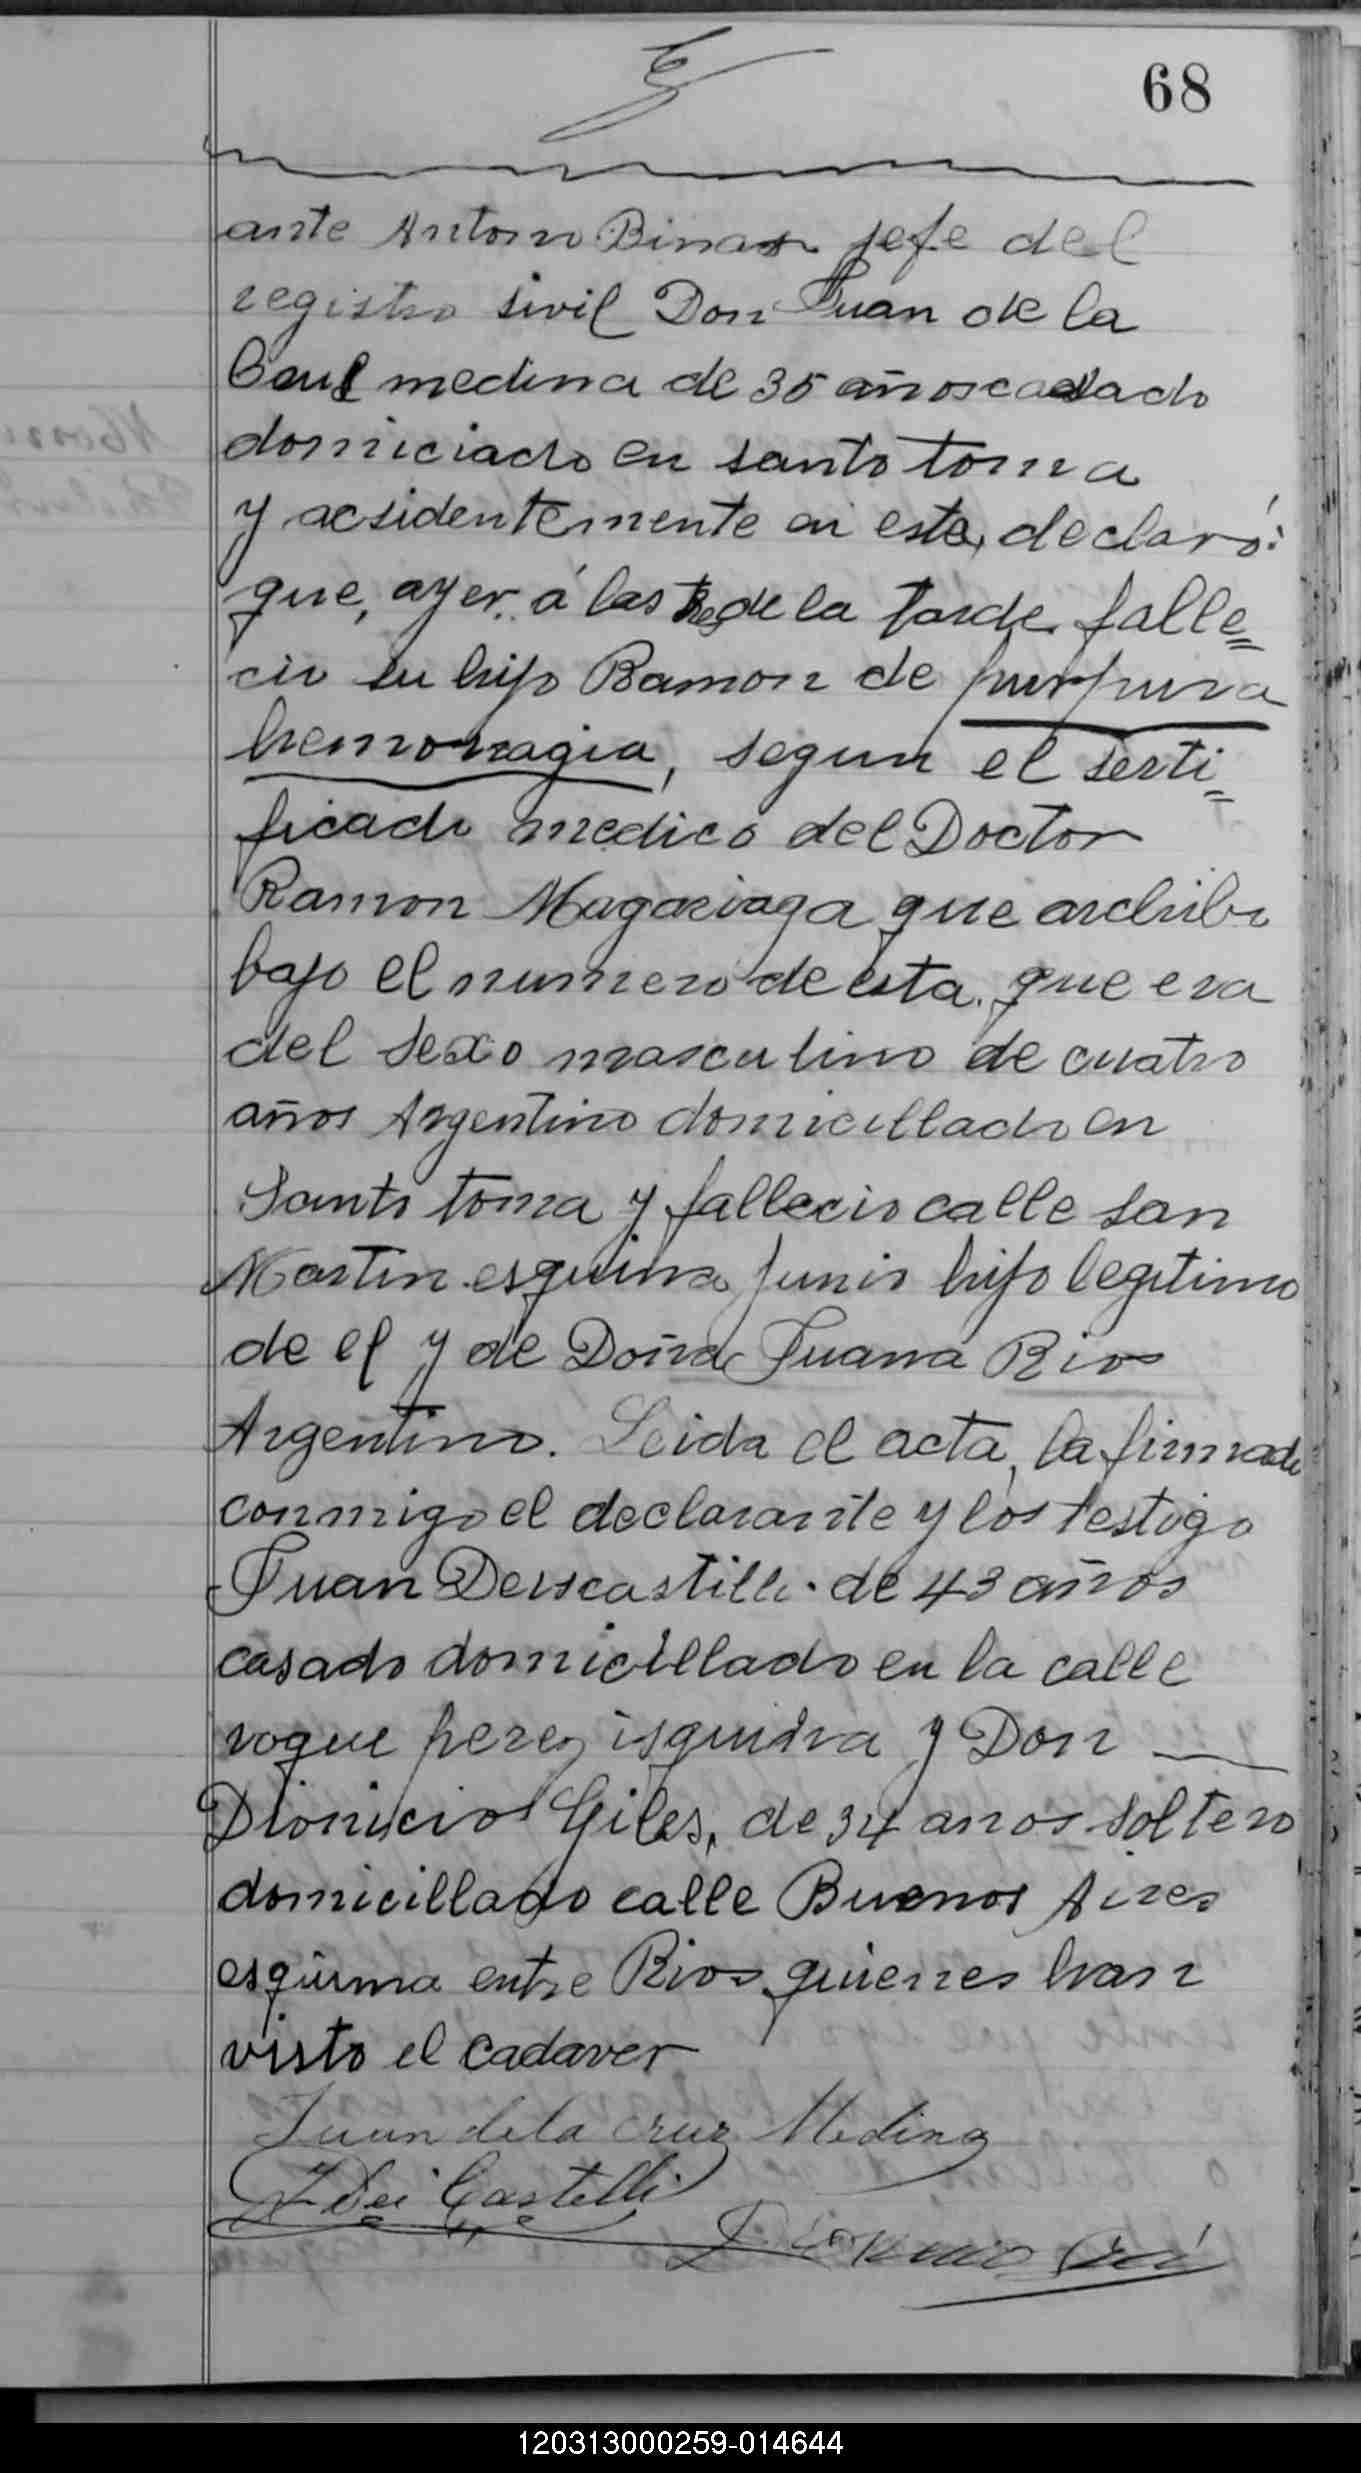 68
ante Antonio Binan jefe del
registro sivil Don Juan de la
Crus medina de 35 años casado
domiciado en santo toma
y acsidentemente en esta, declaró:
que, ayer á las tres de la tarde falle=
cio su hijo Ramon de purpura
hemorragia, segun el serti=
ficado medico del Doctor
Ramon que archibo
bajo el numero de esta. que era
del sexo masculino de cuatro
años Argentino domicillado en
Santo toma y fallecio calle san
Martin esquina Junin hijo legitimo
de el y de Doña Juana Rios
Argentino. Leida el acta, la firmada
conmigo el declarante y los testigo
Juan Deiscastilli de 43 años
casado domicillado en la calle
roque perez isquina y Don
Dionicio Giles, de 34 anos soltero
domicillado calle Buenos Aires
esquina entre Rios quienes han
visto el cadaver
Juan de la cruz Medina
J Dei Castelli
Dionicio
120313000259-014644